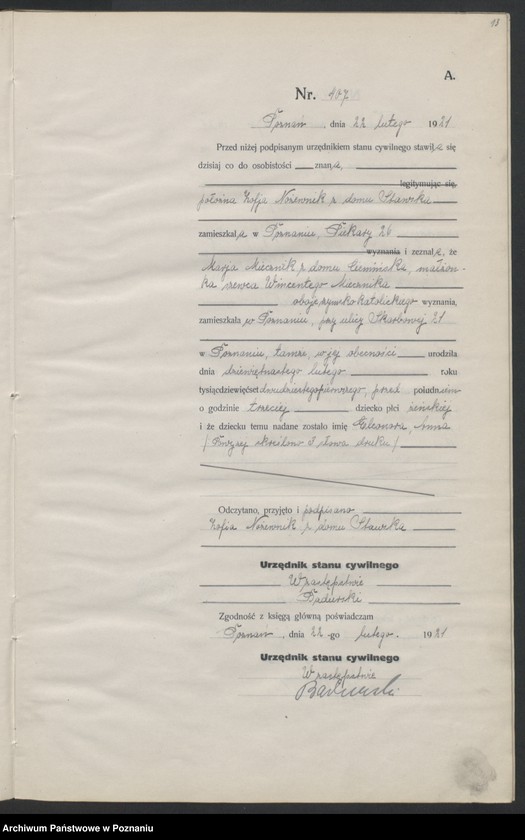 18
A.
Nr. 407
Poznań, dnia 22 lutego 1921
Przed niżej podpisanym urzędnikiem stanu cywilnego stawiła się
dzisiaj co do osobistości znana,
legitymując się,
położna Zofja Norewnik z domu Sławska
zamieszkała w Poznaniu, Piekary 26
wyznania i zeznała, że
Marja Miecznik z domu małżon-
ka szewca Wincentego Miecznika
oboje rzymsko katolickiego wyznania,
zamieszkała w Poznaniu, przy ulicy Skarbowej 21
w Poznaniu, tamże, w jej obecności urodziła
dnia dziewiętnastego lutego roku
tysiącdziewięćset dwudziestegopierwszego, przed południem
o godzinie trzeciej dziecko płci żeńskiej
i że dziecku temu nadane zostało imię Eleonora, Anna
/Powyżej skreślono 3 słowa druku/
Odczytano, przyjęto i podpisano
Zofia Norewnik z domu Sławska
Urzędnik stanu cywilnego
W zastępstwie
Badurski
Zgodność z księgą główną poświadczam
Poznań, dnia 22-go lutego. 1921
Urzędnik stanu cywilnego
W zastępstwie
Badurski
Archiwum Państwowe w Poznaniu